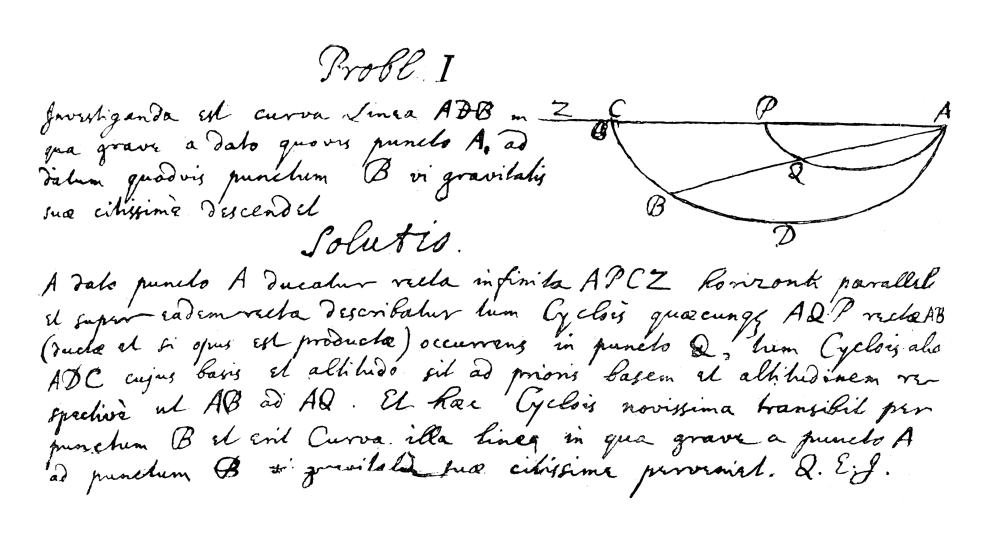 Probl. I
Investiganda est curva Linea ADB in
qua grave a dato quovis puncto A, ad
datum quodvis punctum B vi gravitatis
suæ citissimè descendet
Z C P A
B Q
D
Solutio.
A dato puncto A ducatur recta infinita APCZ horizonti parallela
et super eadem recta describatur tum Cyclois quæcunqꝫ AQP rectæ AB
(ductæ et si opus est productæ) occurrens in puncto Q, tum Cyclois alia
ADC cujus basis et altitudo sit ad prioris basem et altitudinem re-
spectivè ut AB ad AQ. Et hæc Cyclois novissima transibit per
punctum B et erit Curva illa linea in qua grave a puncto A
ad punctum B vi gravitatis suæ citissime perveniet. Q. E. I.